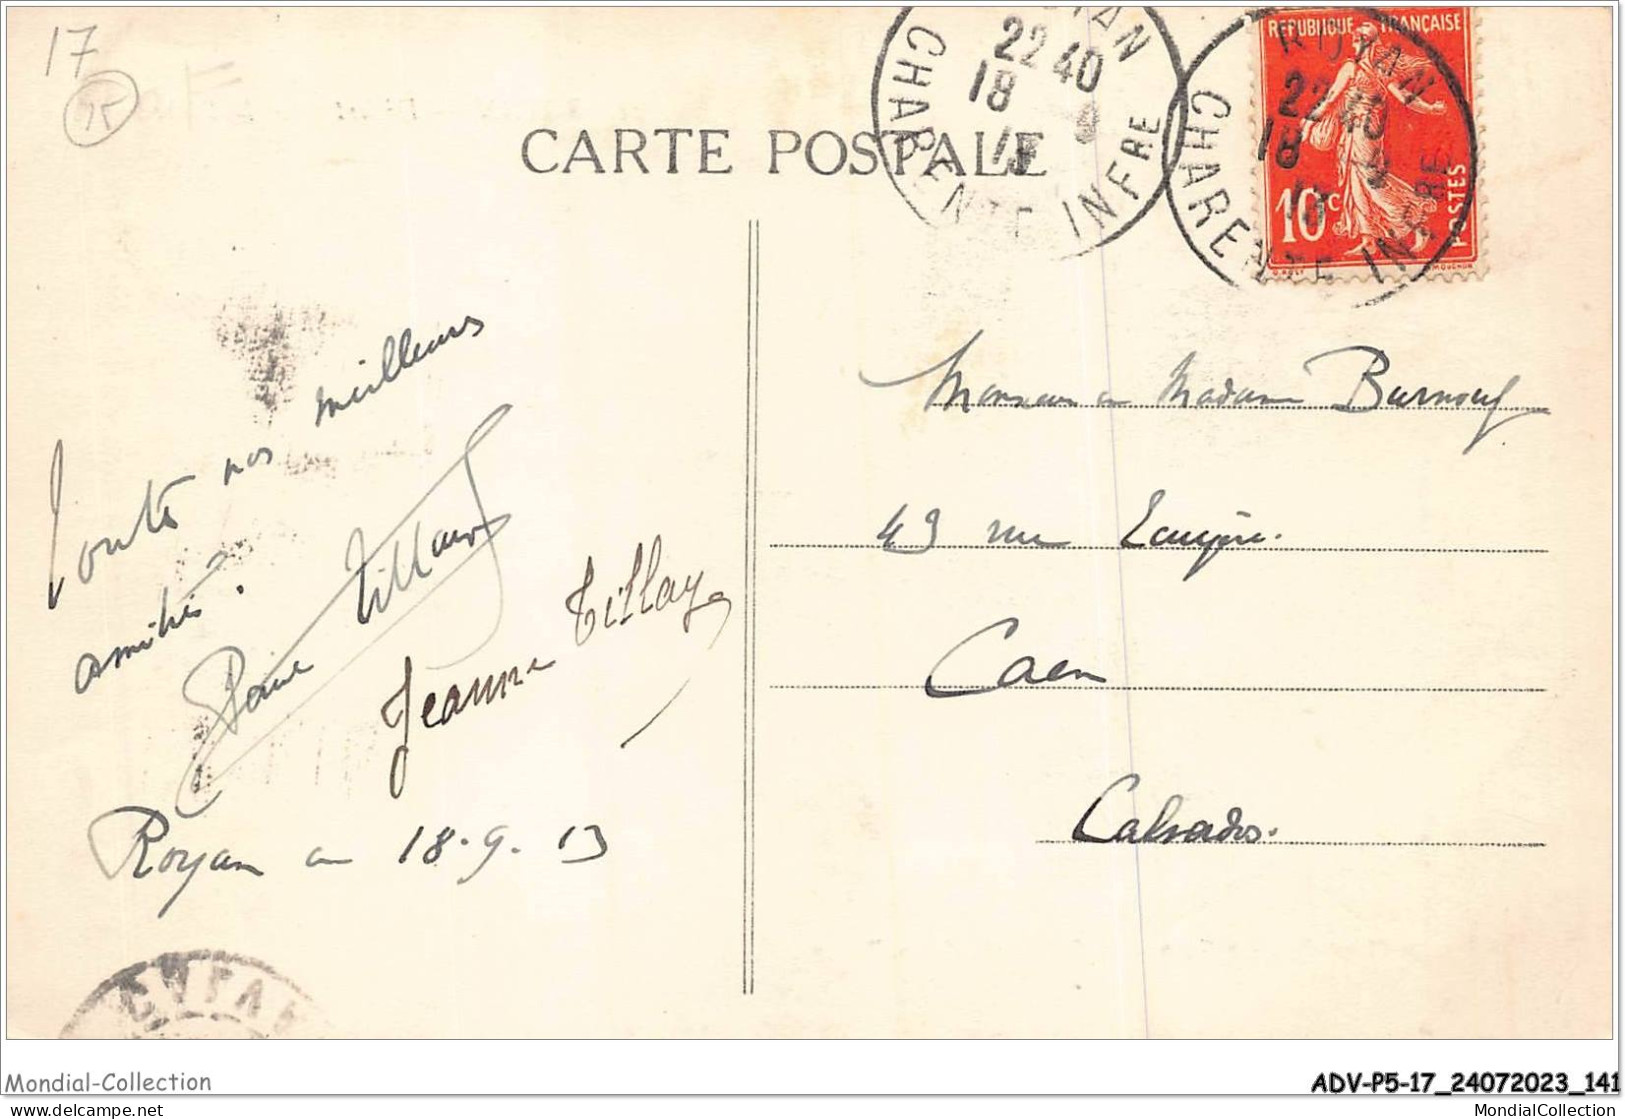 17
CARTE POSTALE
22 40
18 9
13
CHARENTE INFRE
REPUBLIQUE FRANÇAISE
ROYAN
22 40
18 9
13
CHARENTE INFRE
10c
POSTES
Toutes nos meilleurs
amitiés.
Tillay
Jeanne Tillay
Royan le 18.9.13
Monsieur et Madame Burnouf
43 rue
Caen
Calvados.
Mondial-Collection
ADV-P5-17_24072023_141
www.delcampe.net
MondialCollection